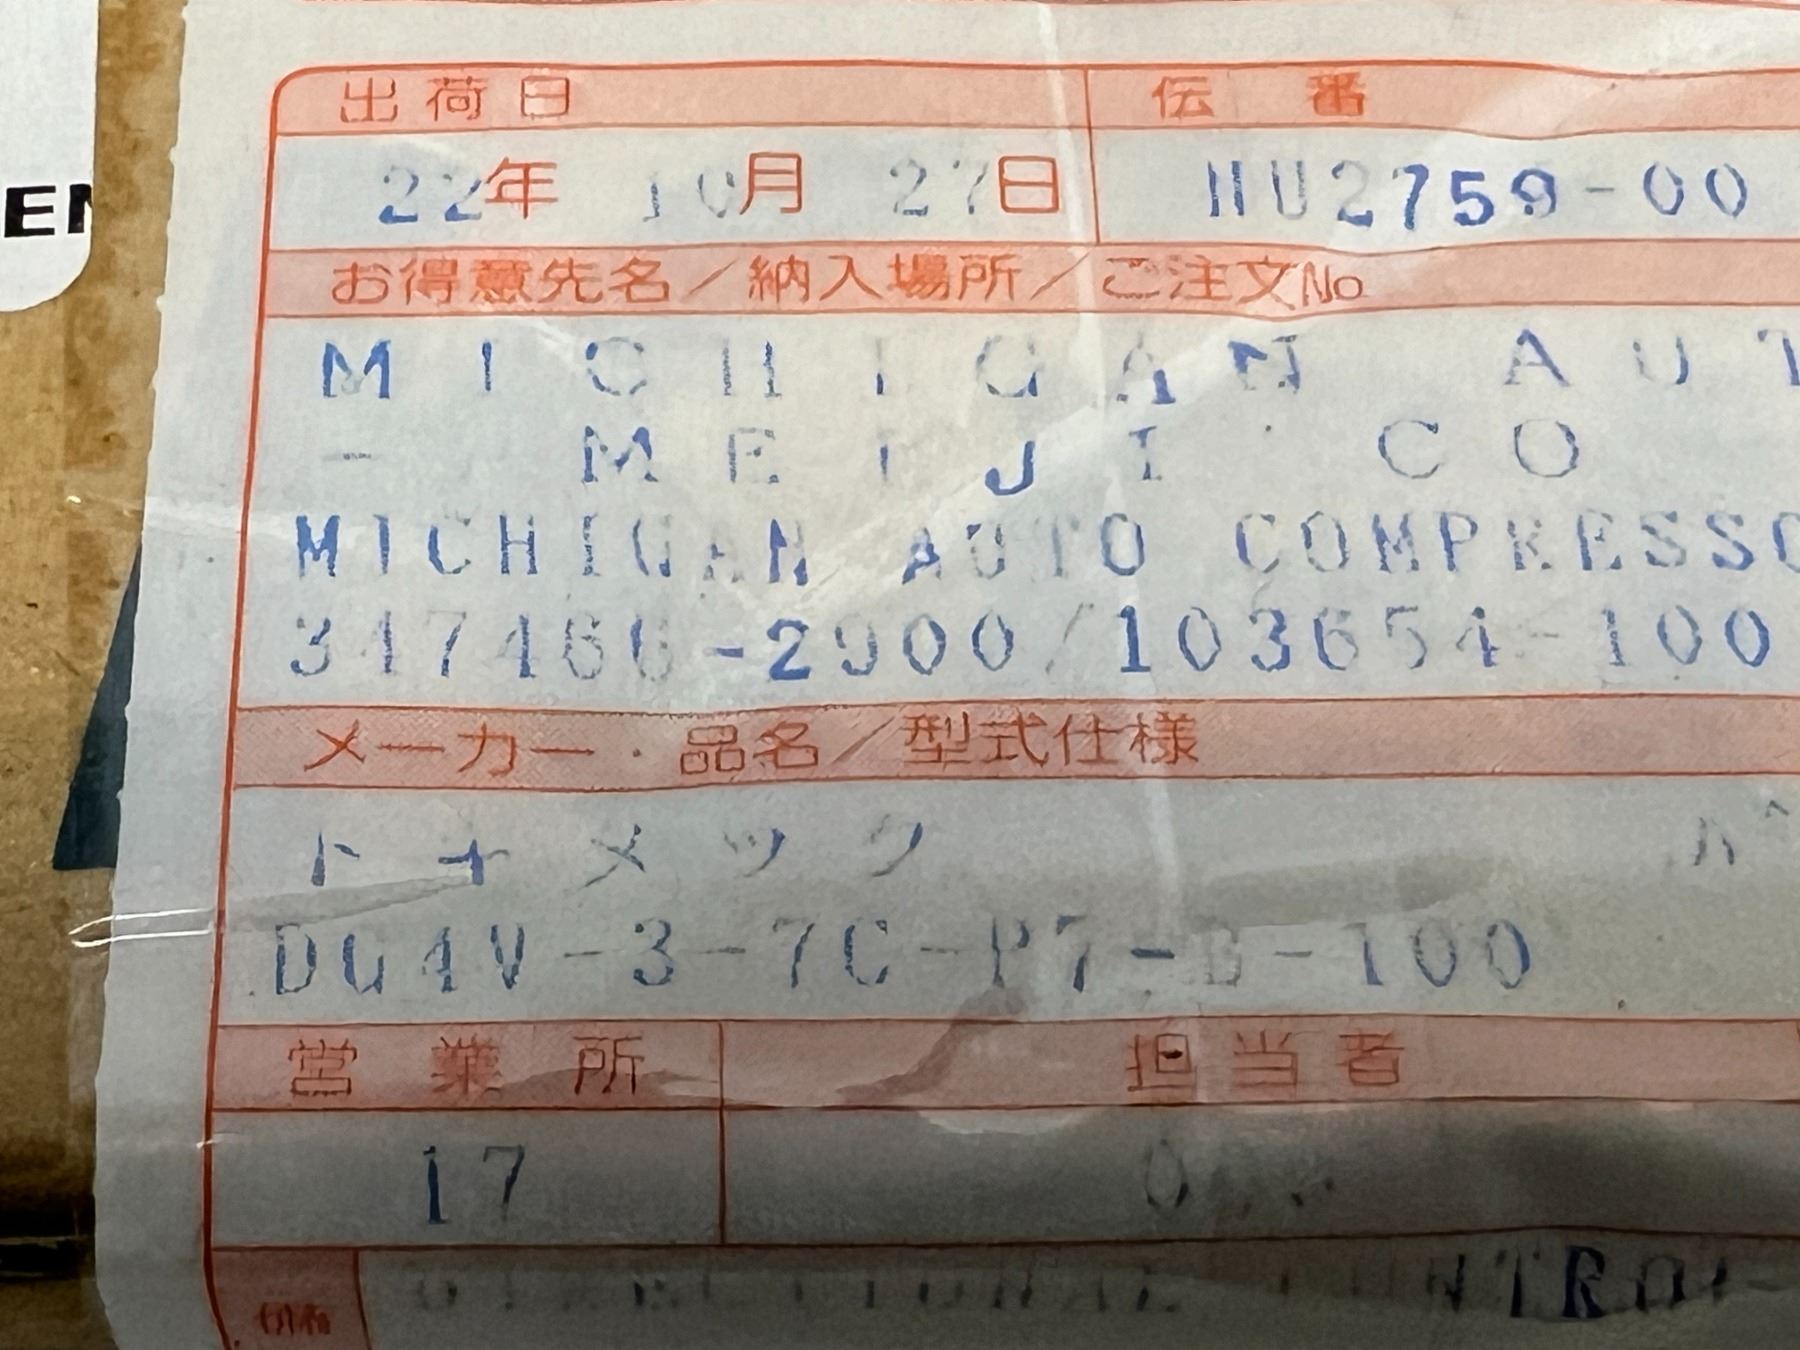 EN
出荷日 伝番
22年 10月 27日 HU2759-00
お得意先名／納入場所／ご注文No
MICHIGAN AUT
- MEIJI CO
MICHIGAN AUTO COMPRESSO
-2900/103654-100
メーカー・品名／型式仕様
トキメック
DG4V-3-7C-P7- -100
営業所 担当者
17
DIRECTIONAL CONTROL